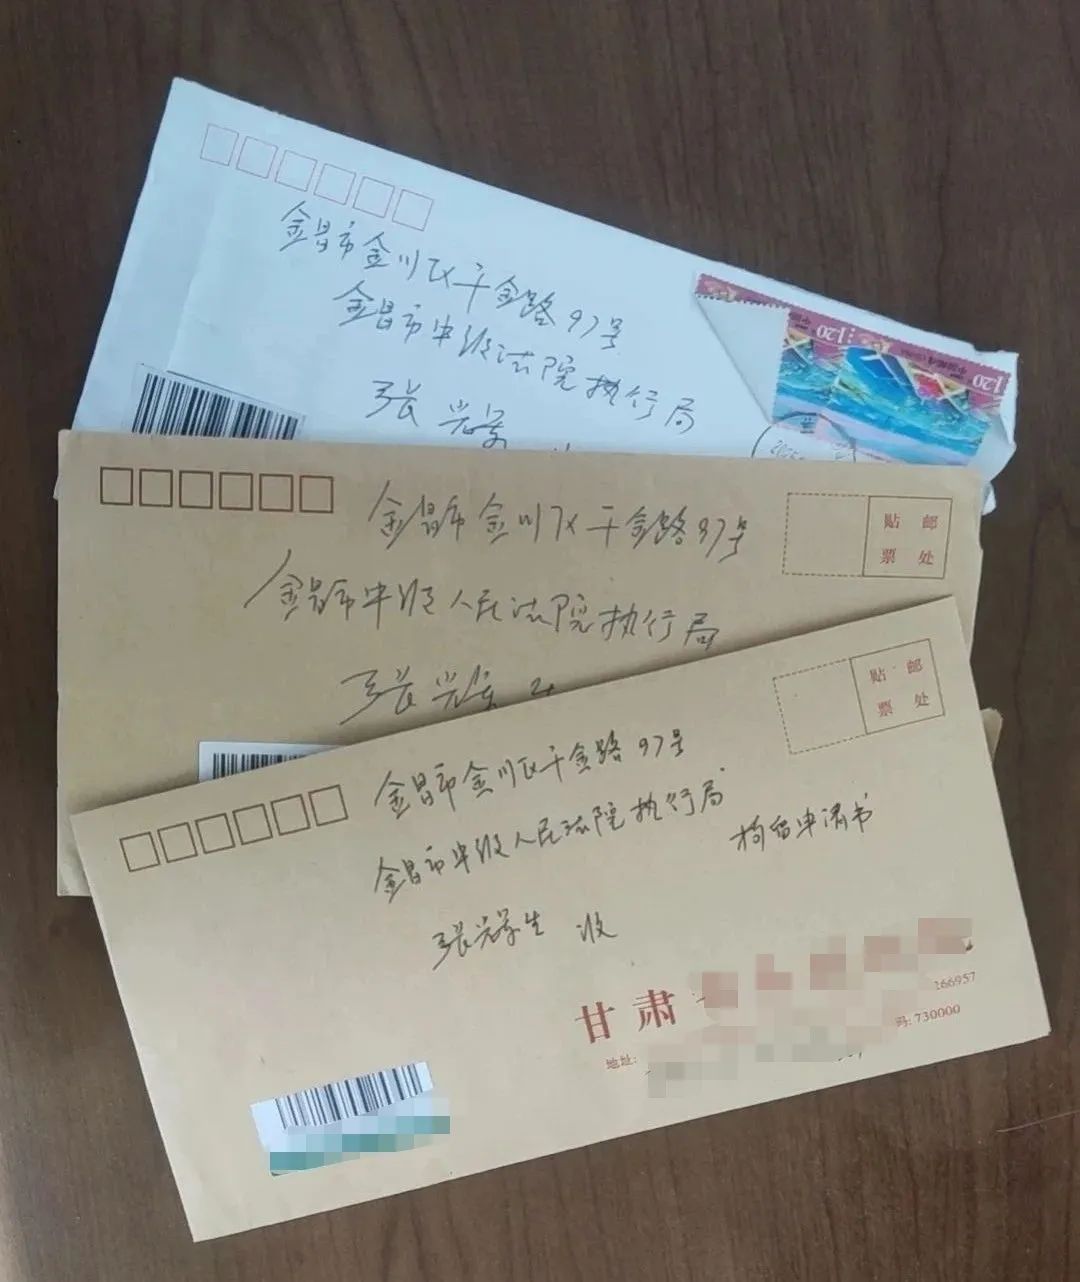 金昌市金川区干金路97号
金昌市中级法院执行局
张兴
120
120
中国邮政
金昌市金川区干金路97号
金昌市中级人民法院执行局
张兴
贴邮
票处
金昌市金川区干金路97号
金昌市中级人民法院执行局
拘留申请书
张兴 生 收
贴邮
票处
甘肃
266957
地址:
码: 730000